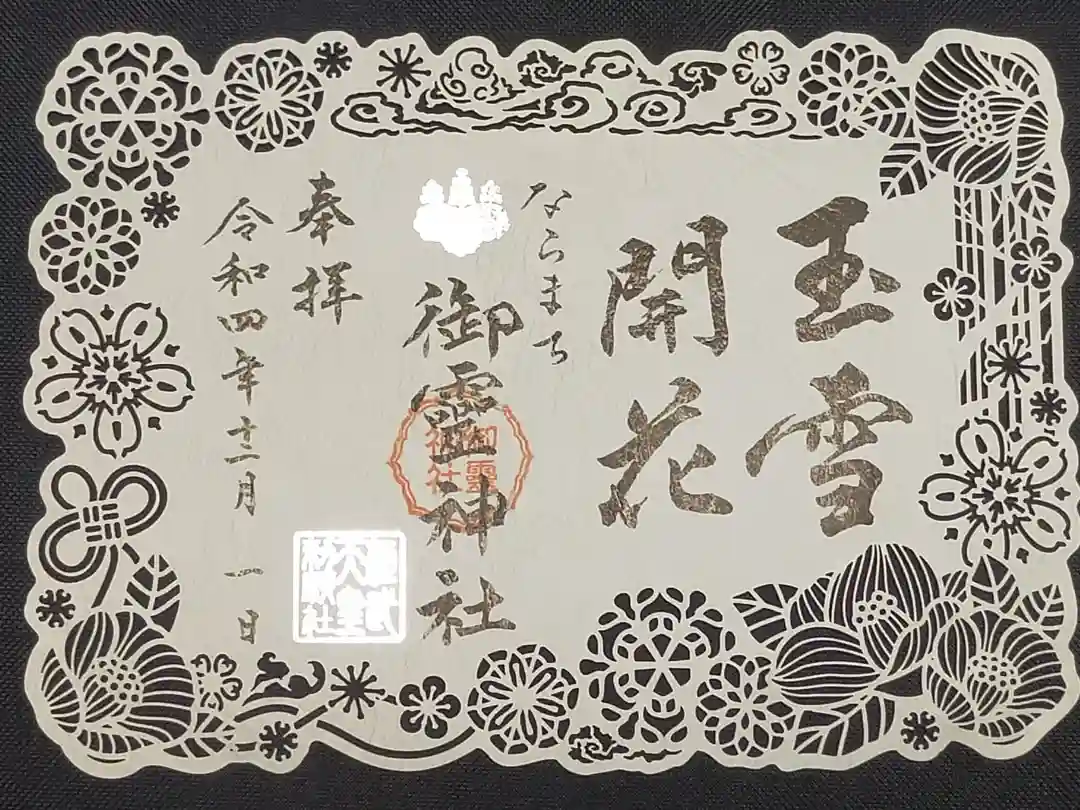 玉雪
開花
ならまち
御霊神社
御靈
神社
奉拝
令和四年十二月一日